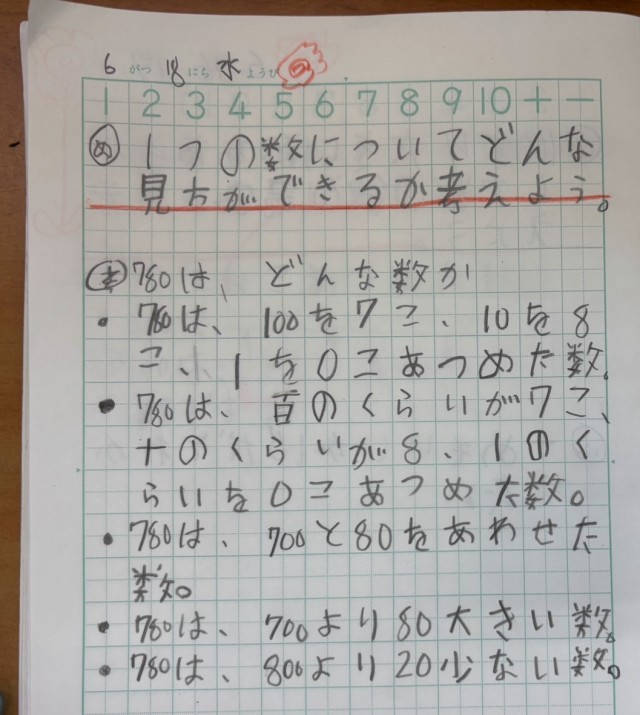 6がつ18にち水ようび
1 2 3 4 5 6 7 8 9 10 + −
め 1つの数についてどんな
見方ができるか考えよう。
ま 780は、どんな数か
・780は、100を7こ、10を8
こ、1を0こあつめた数。
・780は、百のくらいが7こ、
十のくらいが8、1のく
らいを0こあつめた数。
・780は、700と80をあわせた
数。
・780は、700より80大きい数。
・780は、800より20少ない数。